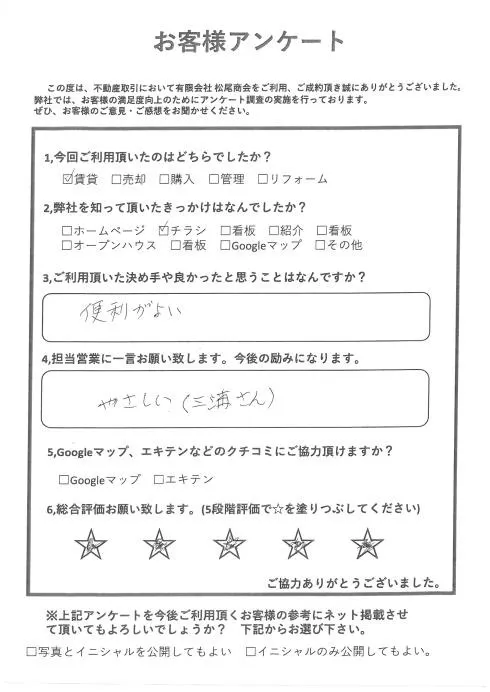 お客様アンケート
この度は、不動産取引において有限会社 松尾商会をご利用、ご成約頂き誠にありがとうございました。
弊社では、お客様の満足度向上のためにアンケート調査の実施を行っております。
ぜひ、お客様のご意見・ご感想をお聞かせください。
1,今回ご利用頂いたのはどちらでしたか？
☑賃貸 □売却 □購入 □管理 □リフォーム
2,弊社を知って頂いたきっかけはなんでしたか？
□ホームページ ☑チラシ □看板 □紹介 □看板
□オープンハウス □看板 □Googleマップ □その他
3,ご利用頂いた決め手や良かったと思うことはなんですか？
便利がよい
4,担当営業に一言お願い致します。今後の励みになります。
やさしい(三溝さん)
5,Googleマップ、エキテンなどのクチコミにご協力頂けますか？
□Googleマップ □エキテン
6,総合評価お願い致します。(5段階評価で☆を塗りつぶしてください)
ご協力ありがとうございました。
※上記アンケートを今後ご利用頂くお客様の参考にネット掲載させ
て頂いてもよろしいでしょうか？ 下記からお選び下さい。
□写真とイニシャルを公開してもよい □イニシャルのみ公開してもよい。